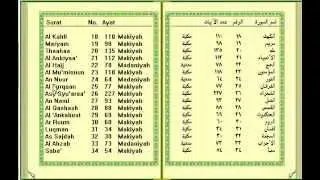 Surat No. Ayat
Al Kahfi 18 110 Makiyah
Maryam 19 98 Makiyah
Thaahaa 20 135 Makiyah
Al Ankiyaa' 21 112 Makiyah
Al Hajj 22 78 Madaniyah
Al Mu'minuun 23 118 Makiyah
An Nuur 24 64 Madaniyah
Al Furqaan 25 77 Makiyah
Asy Syu'araa' 26 227 Makiyah
An Naml 27 93 Makiyah
Al Qashash 28 88 Makiyah
Al 'Ankabuut 29 69 Makiyah
Ar Ruum 30 60 Makiyah
Luqman 31 34 Makiyah
As Sajdah 32 30 Makiyah
Al Ahzab 33 73 Madaniyah
Saba' 34 54 Makiyah
اسم السورة الرقم عدد الآيات
الكهف ١٨ ١١٠ مكية
مريم ١٩ ٩٨ مكية
طه ٢٠ ١٣٥ مكية
الأنبياء ٢١ ١١٢ مكية
الحج ٢٢ ٧٨ مدنية
المؤمنون ٢٣ ١١٨ مكية
النور ٢٤ ٦٤ مدنية
الفرقان ٢٥ ٧٧ مكية
الشعراء ٢٦ ٢٢٧ مكية
النمل ٢٧ ٩٣ مكية
القصص ٢٨ ٨٨ مكية
العنكبوت ٢٩ ٦٩ مكية
الروم ٣٠ ٦٠ مكية
لقمان ٣١ ٣٤ مكية
السجدة ٣٢ ٣٠ مكية
الأحزاب ٣٣ ٧٣ مدنية
سبأ ٣٤ ٥٤ مكية